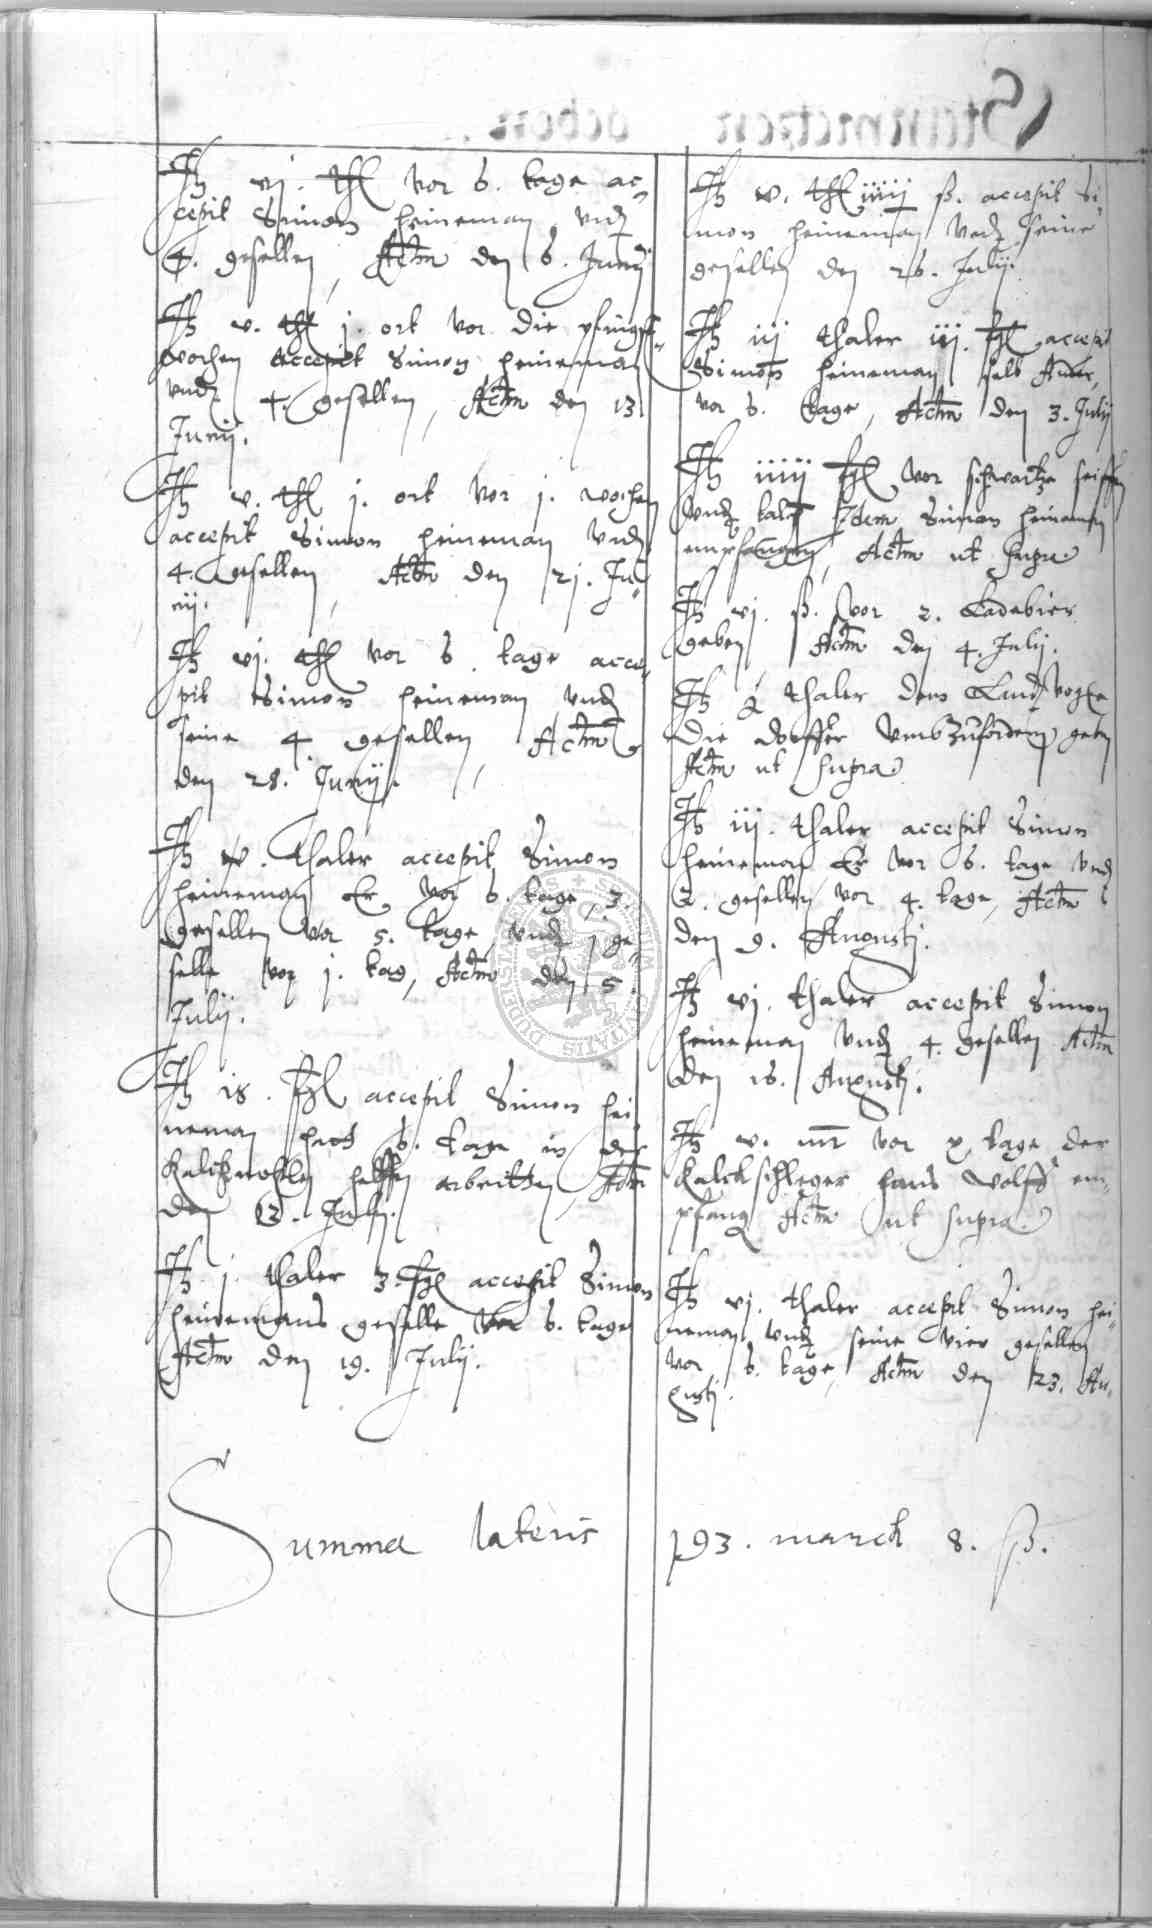 It vj. thl vor 6. tage ac-
cepit Simon heineman vnd
4. gesellen, Actm den 6. Junij
It v. thl j. ort vor die pfingst-
wochen accepit Simon heineman
vnd 4. gesellen, Actm den 13
Junij.
It v. thl j. ort vor j. wochen
accepit Simon heineman vnd
4. gesellen, Actm den 21. Ju-
nij.
It vj. thl vor 6. tage acce-
pit Simon heineman vnd
seine 4 gesellen, Actm
den 28. Junij.
It v. thaler accepit Simon
heineman Er vor 6. tage, 3.
gesellen vor 5. tage vnd j ge-
selle vor j. tag, Actm den 5.
Julij.
It 18. accepit Simon hei-
neman hat 6. tage in der
helffen arbeitten, Actm
den 12. Julij.
It j. thaler 3. accepit Simon
heinemans geselle vor 6. tage
Actm den 19. Julij.
It v. thl iiiij ß. accepit Si-
mon heineman vnd seine
gesellen den 26. Julij.
It iij thaler iij. accepit
Simon heineman selb
vor 6. tage, Actm den 3. Julij
It iiiij vor schwartze seiffen
vnd talch Idem Simon heineman
empfangen, Actm ut supra
It vj. ß. vor 2.
geben, Actm den 4. Julij.
It thaler dem Landvogte
die dorffer umbzufordern geben
Actm ut supra
It iij. thaler accepit Simon
heineman Er vor 6. tage vnd
2. gesellen vor 4. tage, Actm
den 9. Augusti.
It vj. thaler accepit Simon
heineman vnd 4. gesellen Actm
den 16. Augusti.
It v. mr vor x tage der
kalckschleger hans Wolff em-
pfang Actm ut supra
It vj. thaler accepit Simon hei-
neman vnd seine vier gesellen
vor 6. tage, Actm den 23. Au-
gusti.
Summa lateris 193. march 8. ß.